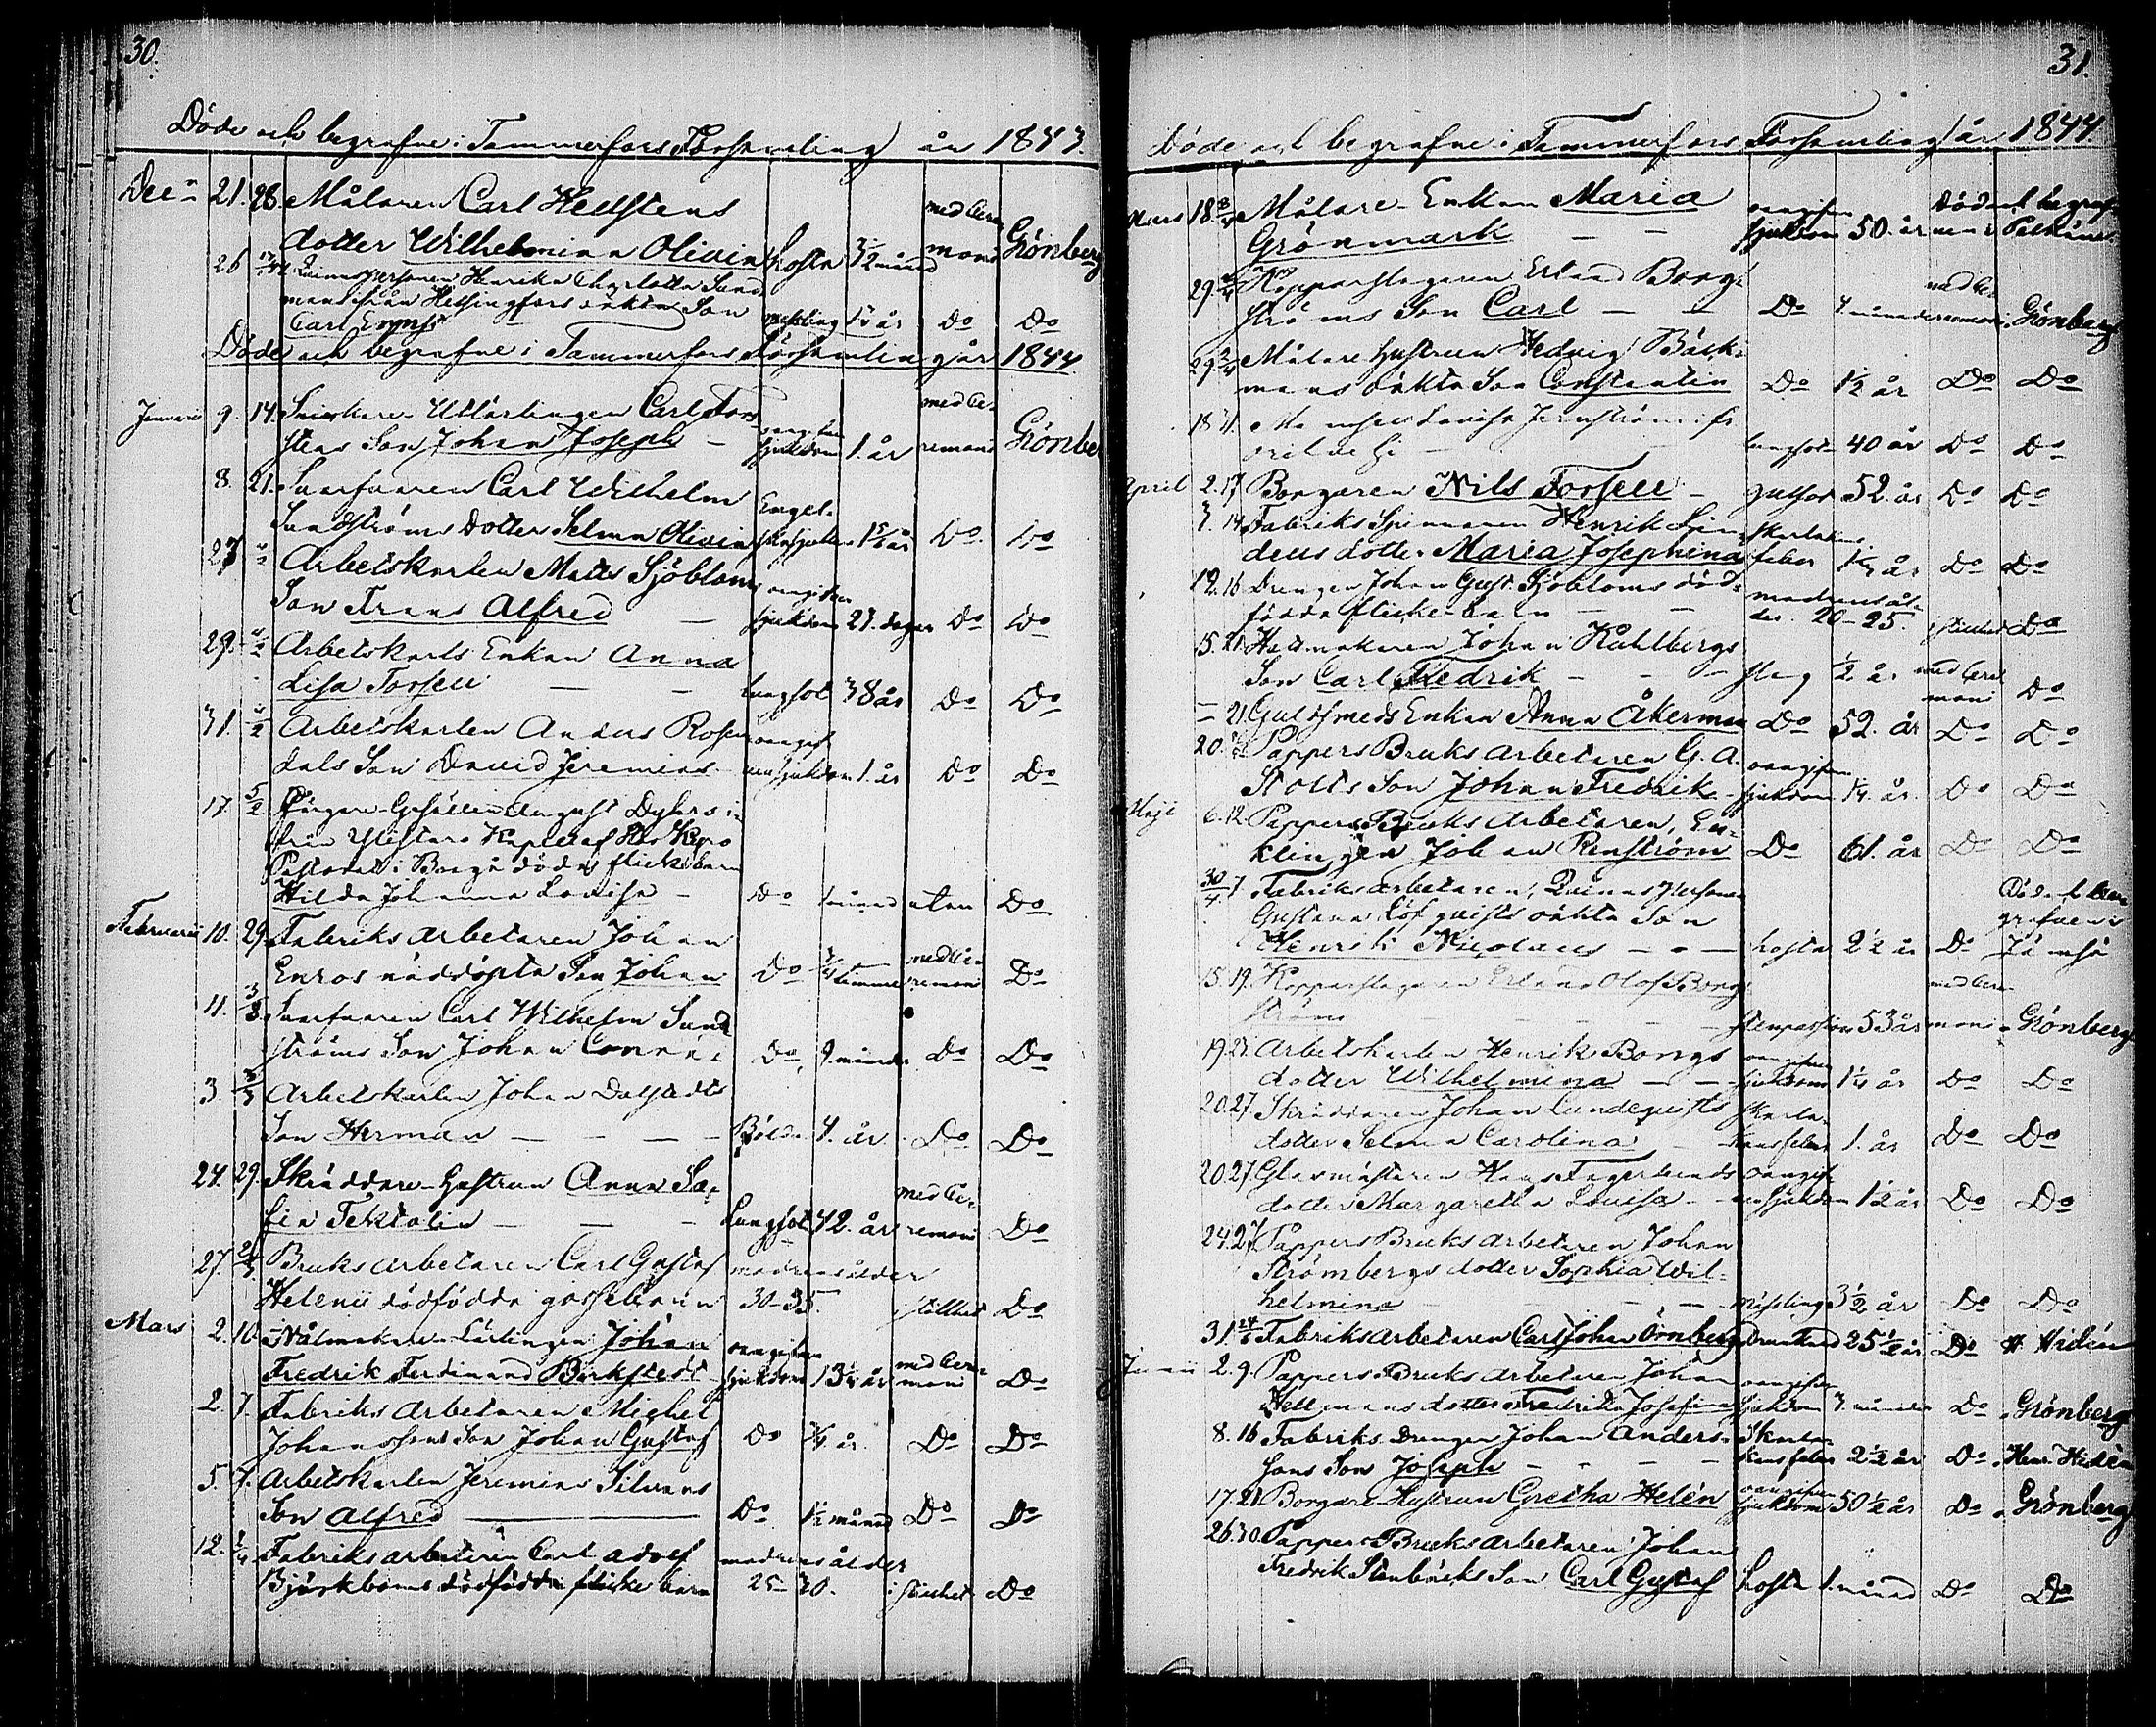 30.
Döde och begrafne i Tammerfors Församling år 1843.
Dec 21. 28 Målaren Carl Hellstens
dotter Wilhelmina Olivia hosta 3½ månad med Cere-
moni Grönberg
26 Qvinnspersonen Henrika Charlotta Sand-
mans ifrån Helsingfors oäkta Son
Carl Ernst messling 1¼ år Do Do
Döde och begrafne i Tammerfors Församling år 1844
Januarii 9. 14. Snickare-Utlärlingen Carl Fors-
stens Son Johan Joseph – oangifven sjukdom 1. år med Ce-
remoni Grönbe
8. 21. Svarfvaren Carl Wilhelm
Sundströms Dotter Selma Olivia Engelska sjukan Do Do
27 Arbetskarlen Matts Sjöbloms
Son Frans Alfred – oangifven sjukdom 21. dagar Do Do
29. Arbetskarls Enkan Anna
Lisa Forsell – – lungsot 38 år Do Do
31. Arbetskarlen Anders Rosen-
dals Son David Jeremias oangifven sjukdom 1. år Do Do
17. 5/2 Färgare-Gesällen August
från Kapell af
i Borgå döda flickebarn
Hilda Johanna Lovisa – Do 1 månad utan Do
Februarii 10. 29. Fabriks arbetaren Johan
Enros nöddöpta Son Johan Do ¾ timme med Ce-
remoni Do
11. 3/3 Svarfvaren Carl Wilhelm Sund-
ströms Son Johan Conrad Do 9 månader Do Do
3. 3/3 Arbetskarlen Johan Dalstedts
Son Herman – – – – 4. år Do Do
24. 29. Skräddare-Hustrun Anna So-
fia Tektolin – – – Lungsot 42. år med Ce-
remoni Do
27. Bruks arbetaren Carl Gustaf
Helenii dödfödda gossebarn modrens ålder
30–35. i stillhet Do
Mars 2. 10. Nålmakare-Lärlingen Johan
Fredrik Ferdinand Birkstedt oangifven sjukdom 13¼ år med Cere-
moni Do
2. 7. Fabriks arbetaren Michel
Johanssons Son Johan Gustaf Do ¾ år. Do Do
5. 7. Arbetskarlen Jeremias Silvans
Son Alfred – Do 1½ månad Do Do
12. Fabriks arbetaren Carl Adolf
Björkboms dödfödda flicke barn modrens ålder
25–30. i stillhet Do
31.
Döde och begrafne i Tammerfors Församling år 1844.
Mars 18. Målare-Enkan Maria
Grönmark – – oangifven sjukdom 50. år Död och begrafven i Pälkäne
29. Kopparslagaren Erland Borg-
ströms Son Carl – – Do 4 månader med Ce-
remoni Grönberg
29. Målare hustrun Hedvig Bäck-
mans oäkta Son Constantin Do 1½ år Do Do
18 31. Mamsell Lovisa Jernström
– lungsot 40 år Do Do
April 2. 17 Borgaren Nils Forsell – gulsot 52. år Do Do
7. 14. Fabriks Spinnaren Henrik Lin-
dells dotter Maria Josephina skarlakans
feber Do Do
12. 16 Drengen Johan Gust. Sjöbloms död-
födda flicke-barn – – modrens ål-
der. 20–25. i stillhet Do
15. 21. Hattmakaren Johan Kuhlbergs
Son Carl Fredrik – – – slag ½ år med Cere-
moni Do
– 21. Guldsmeds Enkan Anna Åkerman Do 52. år Do Do
20. Pappers Bruks Arbetaren G. A.
Stolts Son Johan Fredrik – oangifven sjukdom 1¼ år. Do Do
Maji 6. 12. Pappers Bruks Arbetaren, En-
klingen Johan Renström Do 61. år Do Do
30/4. 7. Fabriks arbetaren, Qvinnspersonen
Gustava Löfqvists oäkta Son
Henrik Nicolaus – – hosta 2½ år Do Död och be-
grafven i
Jämsä
15. 19. Kopparslagaren Erland Olof Borg-
ström – – – – stenpassion 53 år med Cere-
moni Grönberg
19. 27. Arbetskarlen Henrik Bongs
dotter Wilhelmina – – oangifven sjukdom 1¼ år Do Do
20. 27 Skräddaren Johan Lundeqvists
dotter Selma Carolina – skarla-
kansfeber 1. år Do Do
20. 27 Glasmästaren Hans Fagerlunds
dotter Margaretha Lovisa – oangif-
ven sjukdom 1½ år Do Do
24. 27. Pappers Bruks arbetaren Johan
Strömbergs dotter Sophia Wil-
helmina – – messling 3½ år Do Do
31. Fabriks arbetaren Carl Johan Örnberg Drunknad 25½ år Do H Hidén
Junii 2. 9. Pappers Bruks arbetaren Johan
Hellmans dotter Fredrika Josefina oangifven sjukdom 3 månader Do Grönberg
8. 16 Fabriks Drengen Johan Anders-
sons Son Joseph – – – – Skarla-
kansfeber 2½ år Do Henr. Hidén
17. 21 Borgare-Hustrun Gretha Helén oangifven sjukdom 50½ år Do Grönberg
26. 30. Pappers Bruks arbetaren Johan
Fredrik Stenbäcks Son Carl Gustaf hosta 1. månad Do Do